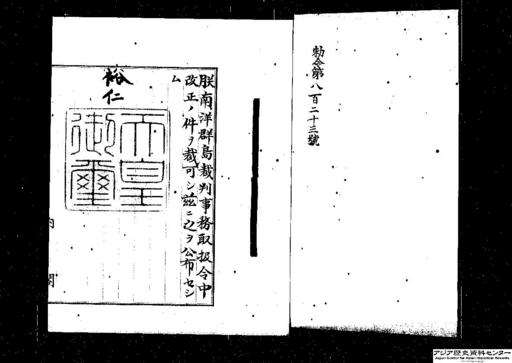 勅令第八百二十三號
朕南洋群島裁判事務取扱令中
改正ノ件ヲ裁可シ茲ニ之ヲ公布セシ
ム
裕仁
天皇
御璽
内閣
アジア歴史資料センター
Japan Center for Asian Historical Records